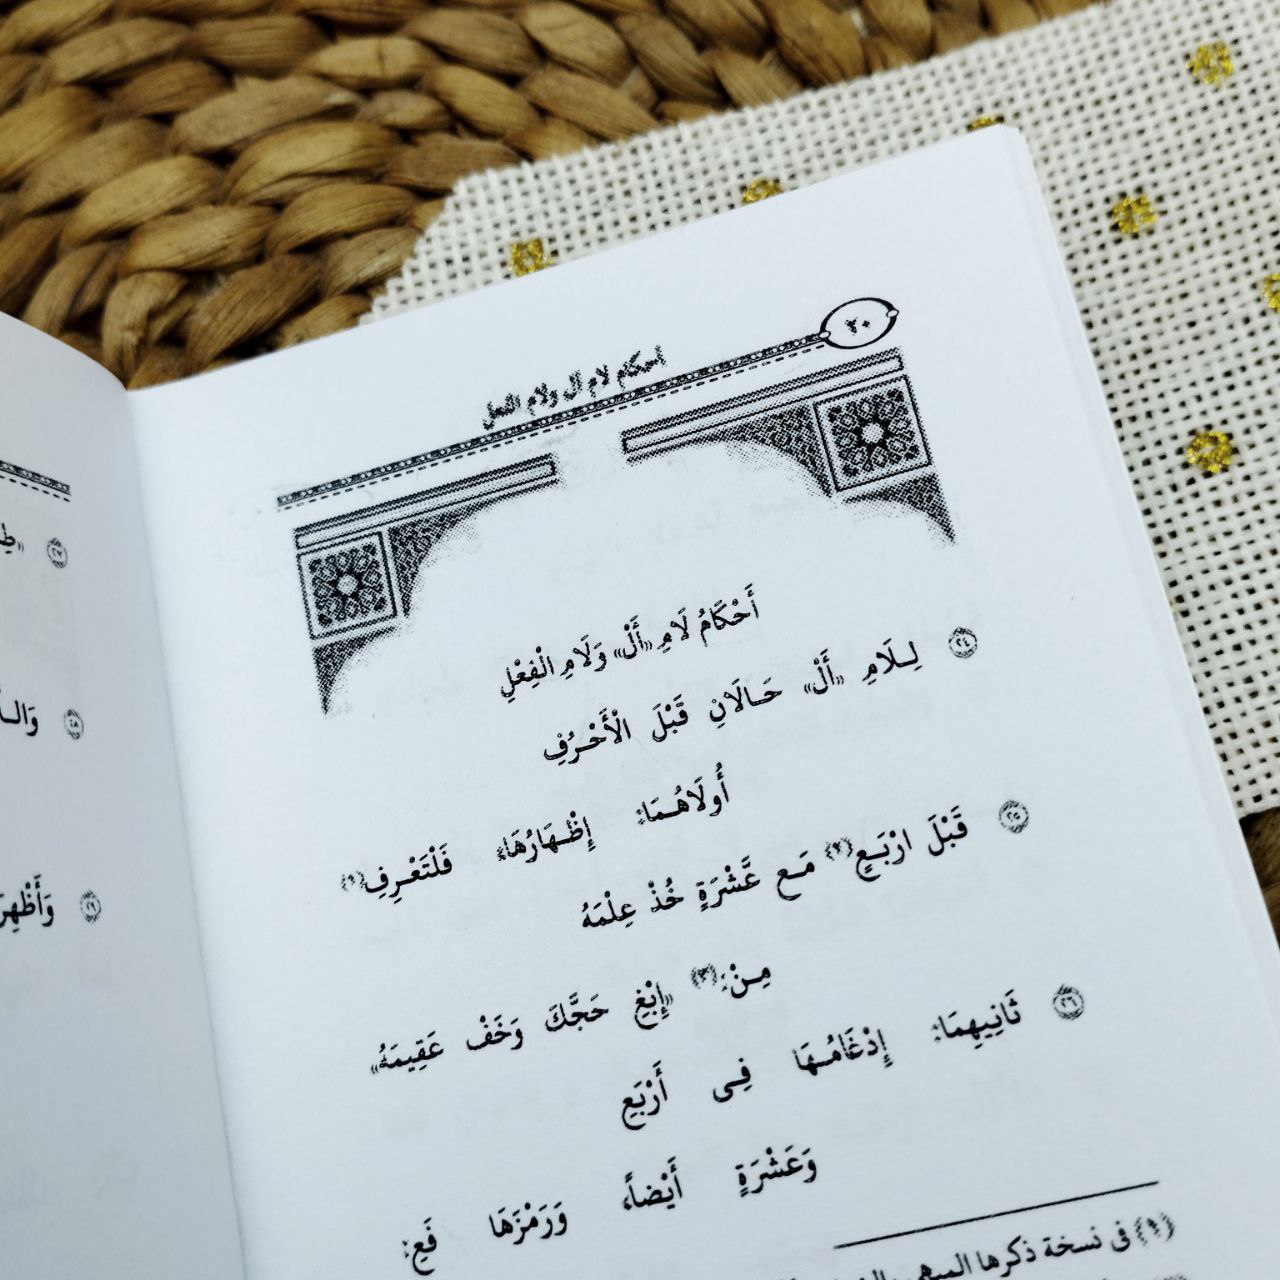 ٢٠
أحكام لام أل ولام الفعل
أَحْكَامُ لَامِ «أَلْ» وَلَامِ الْفِعْلِ
٢٤ لِلَامِ «أَلْ» حَالَانِ قَبْلَ الْأَحْرُفِ
أُولَاهُمَا: إِظْهَارُهَا، فَلْتَعْرِفِ(١)
٢٥ قَبْلَ ارْبَعٍ(٢) مَع عَّشْرَةٍ خُذْ عِلْمَهُ
مِنْ:(٣) «إِبْغِ حَجَّكَ وَخَفْ عَقِيمَهُ»
٢٦ ثَانِيهِمَا: إِدْغَامُهَا فِى أَرْبَعِ
وَعَشْرَةٍ أَيْضاً، وَرَمْزَهَا فَعِ:
(١) فى نسخة ذكرها
٢٧ «طِ
٢٨ وَالـ
٢٩ وَأَظْهِرَ